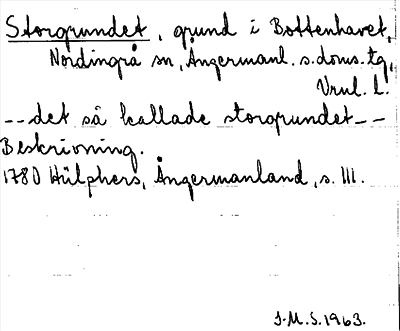 Storgrundet, grund i Bottenhavet,
Nordingrå sn, Ångermanl. s. doms. tg,
Vrnl. L.
-- det så kallade storgrundet --
Beskrivning.
1780 Hülphers, Ångermanland, s. 111.
J.M.S. 1963.